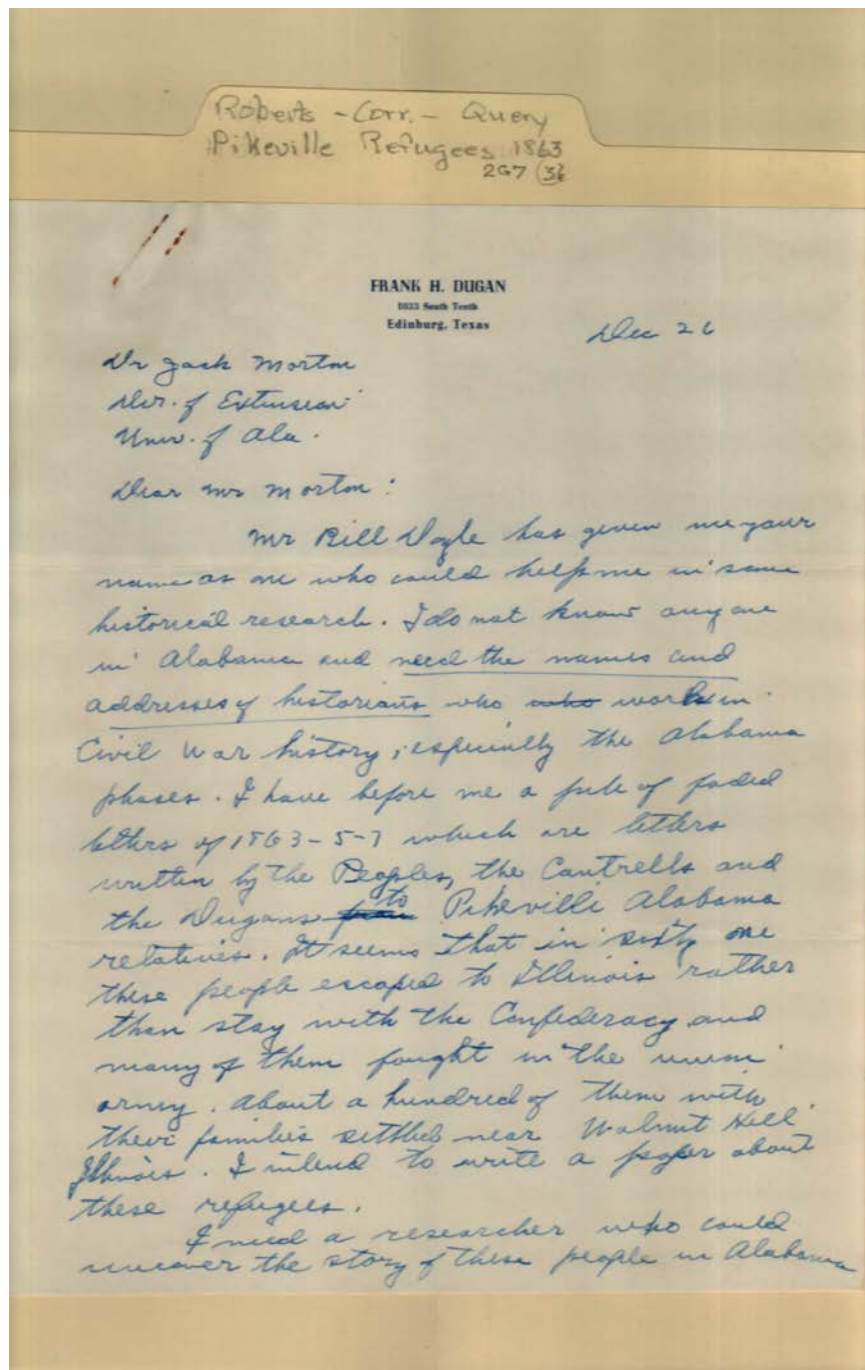 Roberts - Corr. - Query
Pikeville Refugees 1863
2G7 (36
FRANK H. DUGAN
1033 South Tenth
Edinburg, Texas
Dec 26
Dr Jack Morton
Dir. of Extension
Univ. of Ala.
Dear Mr Morton:
Mr Bill Dogle has given me your
name as one who could help me in some
historical research. I do not know any one
in Alabama and need the names and
addresses of historians who who work in
Civil War history, especially the Alabama
phases. I have before me a pile of faded
letters of 1863-5-7 which are letters
written by the Peoples, the Cantrells and
the Dugans from to Pikeville Alabama
relatives. It seems that in sixty one
these people escaped to Illinois rather
than stay with the Confederacy and
many of them fought in the union
army. About a hundred of them with
their families settled near Walnut Hill
Illinois. I intend to write a paper about
these refugees.
I need a researcher who could
uncover the story of these people in Alabama